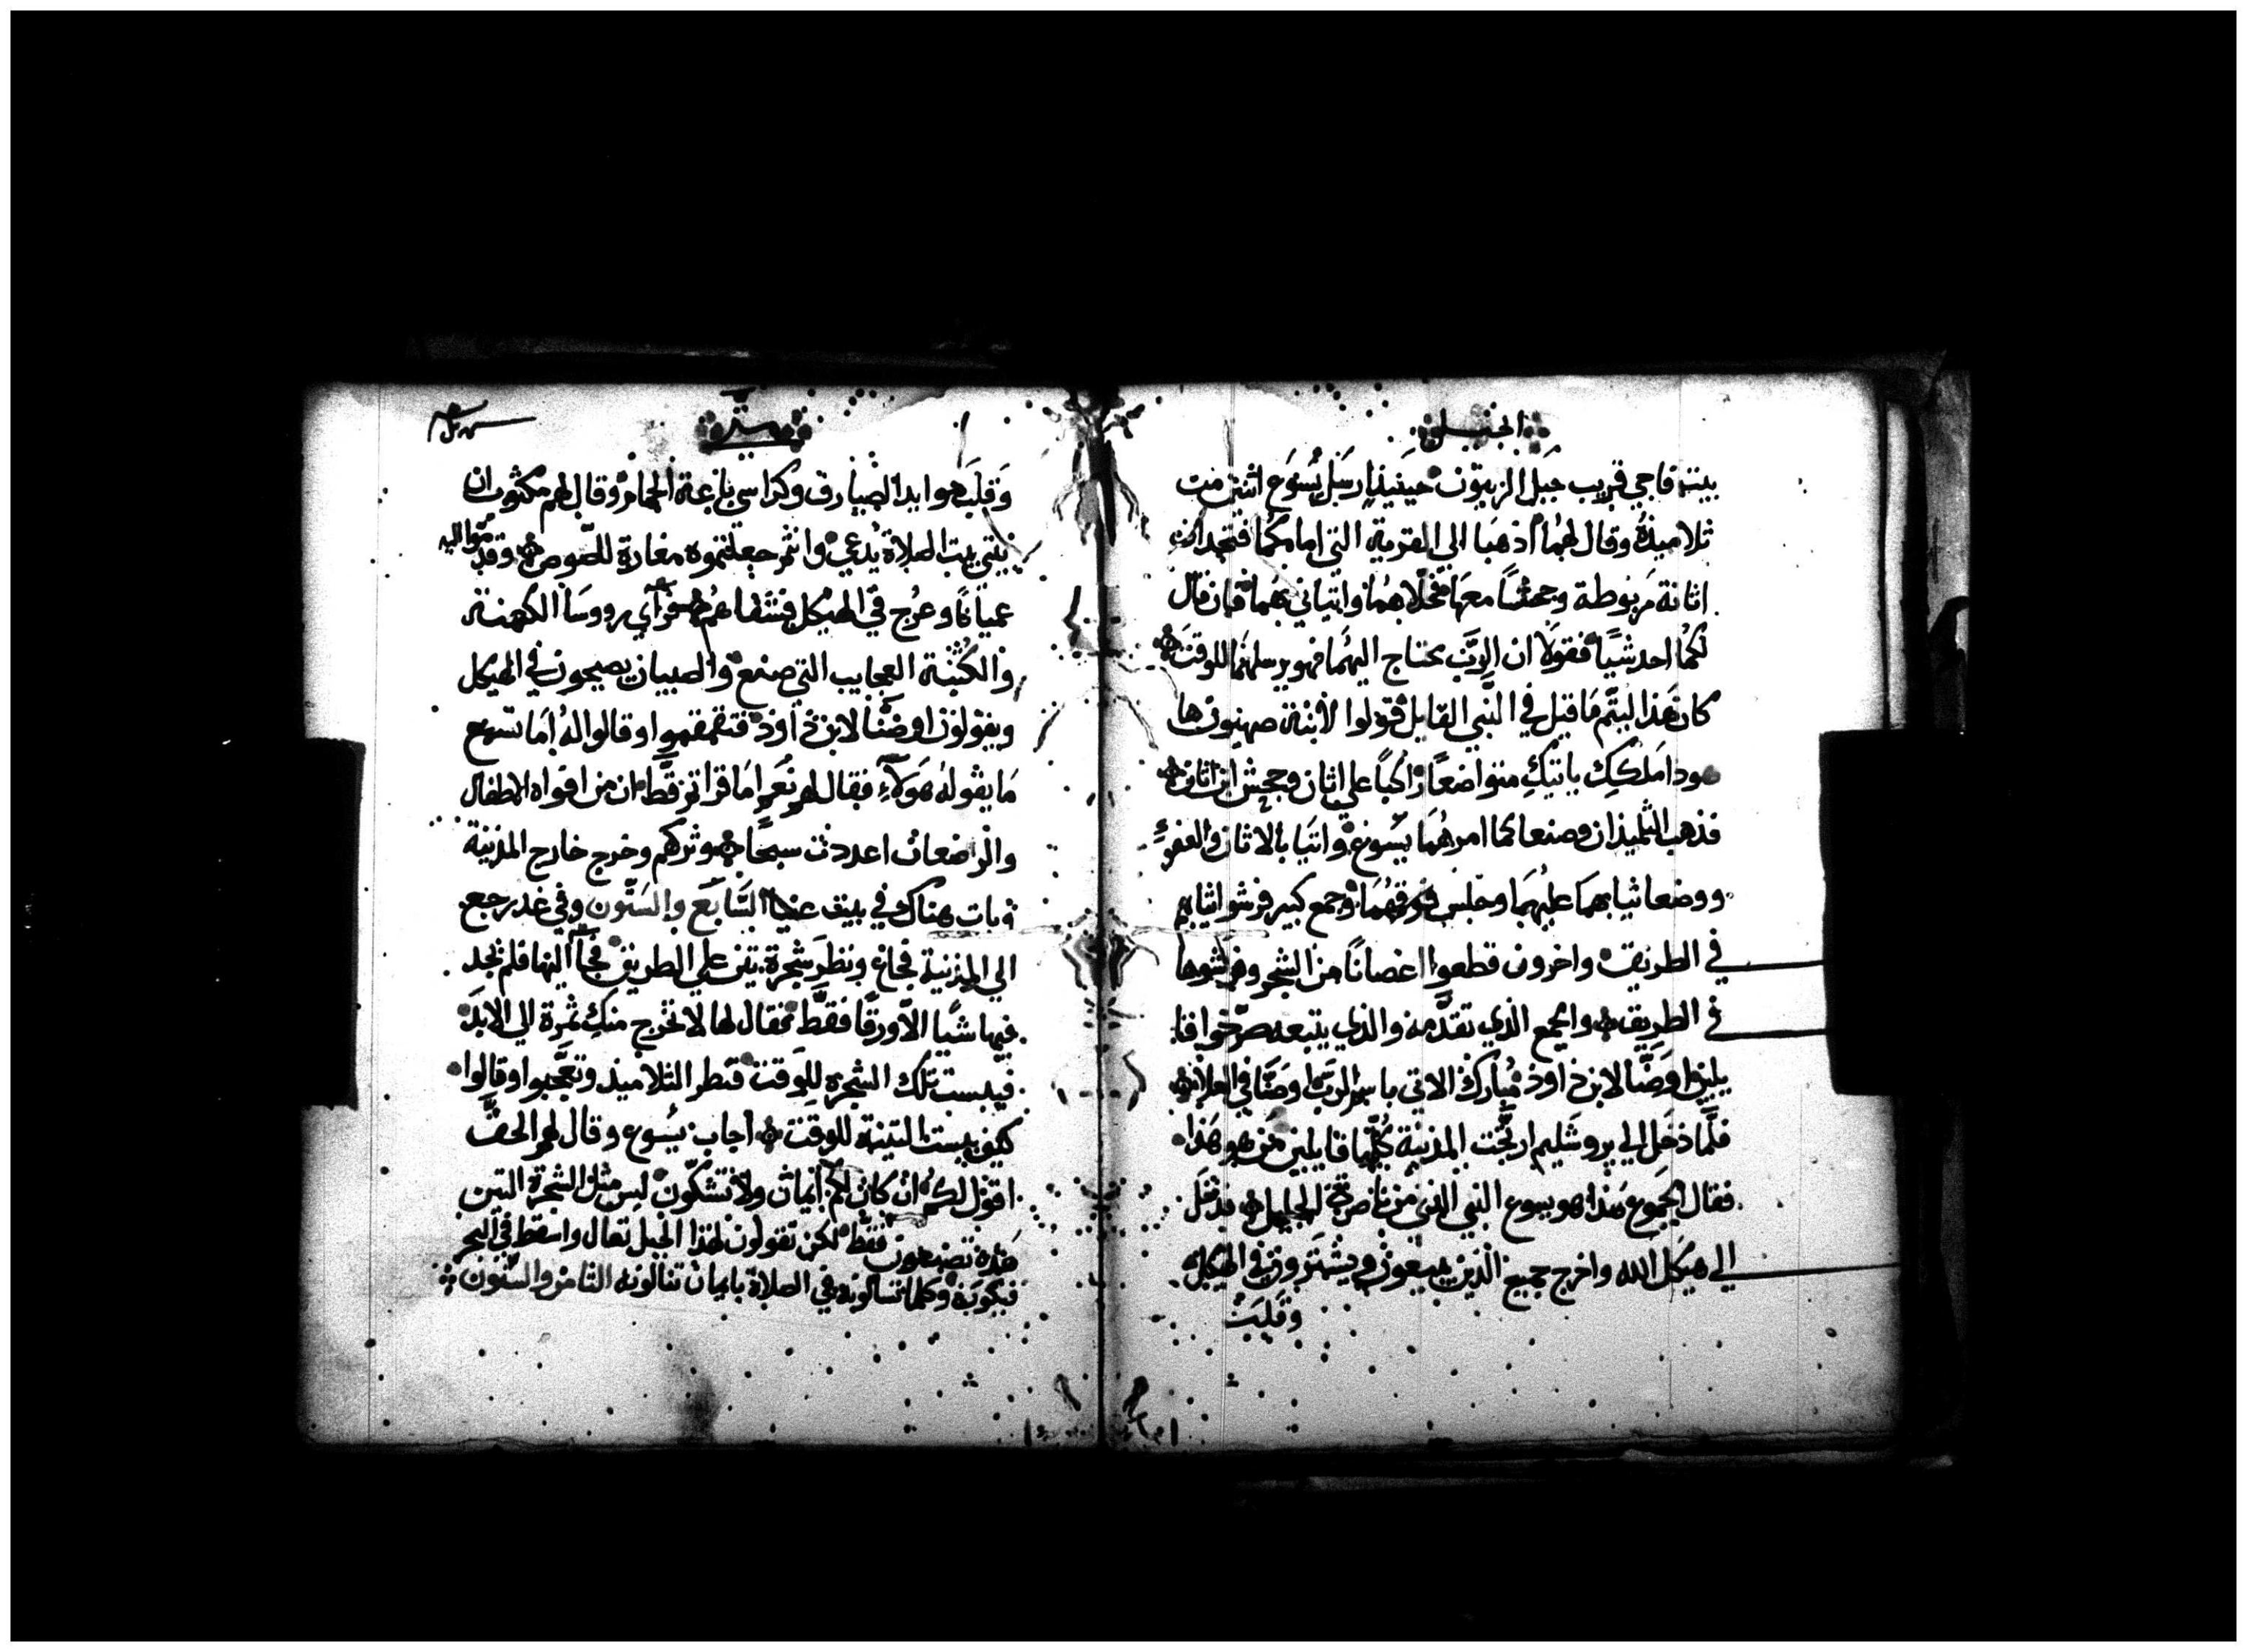 انجيل
بيت فاجي قريب جبل الزيتون حينيذ ارسل يسوع اثنين من
تلاميذه وقال لهما اذهبا الي القرية التي امامكما فتجدان
اتانة مربوطة وجحشًا معها فحلاهما واتياني بهما فان قال
لكما احد شيًا فقولا ان الرب يحتاج اليهما فهو يرسلهما للوقت
كان هذا ليتم ما قيل في النبي القايل قولوا لابنة صهيون ها
هوذا ملكك ياتيك متواضعًا راكبًا علي اتان وجحش ابن اتان
فذهب التلميذان وصنعا كما امرهما يسوع واتيا بالاتان والعفو
ووضعا ثيابهما عليهما وجلس فوقهما وجمع كبير فرشوا ثيابهم
في الطريق واخرون قطعوا اغصانًا من الشجر وفرشوها
في الطريق والجمع الذي تقدمه والذي يتبعه صرخوا قا
يلين اوصنا لابن داوود مبارك الاتي باسم الرب اوصنا في العلا
فلما دخل الي يروشليم ارتجت المدينة كلها قايلين من هو هذا
فقال الجموع هذا هو يسوع النبي الذي من ناصرة الجليل فدخل
الي هيكل الله واخرج جميع الذين يبيعون ويشترون في الهيكل
وقلب
متي
وقلب موايد الصيارف وكراسي باعة الحمام وقال لهم مكتوب ان
بيتي بيت الصلاة يدعي وانتم جعلتموه مغارة للصوص وقدموا اليه
عميانًا وعرج في الهيكل فشفاهم فراي رووسا الكهنة
والكتبة العجايب التي صنع والصبيان يصيحون في الهيكل
ويقولون اوصنا لابن داوود فتقمقموا وقالوا له اما تسمع
ما يقوله هولاء فقال لهم نعم اما قراتم قط ان من افواه الاطفال
والراضعان اعددت سبحًا ثم تركهم وخرج خارج المدينة
وبات هناك في بيت عنيا السابع والستون وفي غد رجع
الي المدينة فجاع ونظر شجرة تين علي الطريق فجا اليها فلم يجد
فيها شيًا الا ورقًا فقط فقال لها لا تخرج منك ثمرة الي الابد
فيبست تلك الشجرة للوقت فنظر التلاميذ وتعجبوا وقالوا
كيف يبست التينة للوقت اجاب يسوع وقال لهم الحق
اقول لكم ان كان لكم ايمان ولا تشكون ليس مثل الشجرة التين
هذه تصنعون فقط لكن تقولون لهذا الجبل تعال واسقط في البحر
فيكون وكلما تسالونه في الصلاة بايمان تنالونه الثامن والستون